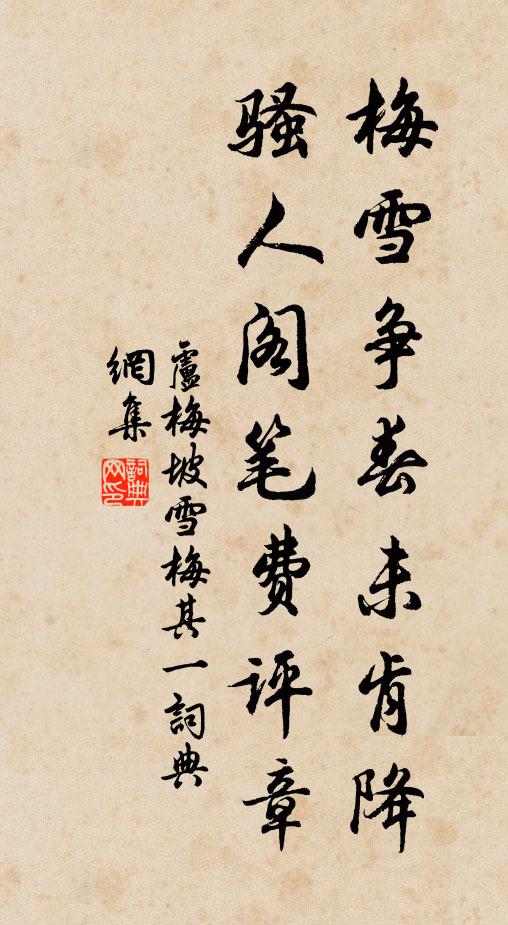 梅雪争春未肯降
骚人阁笔费评章
盧梅坡雪梅其一詞典
網集
詞典
网印